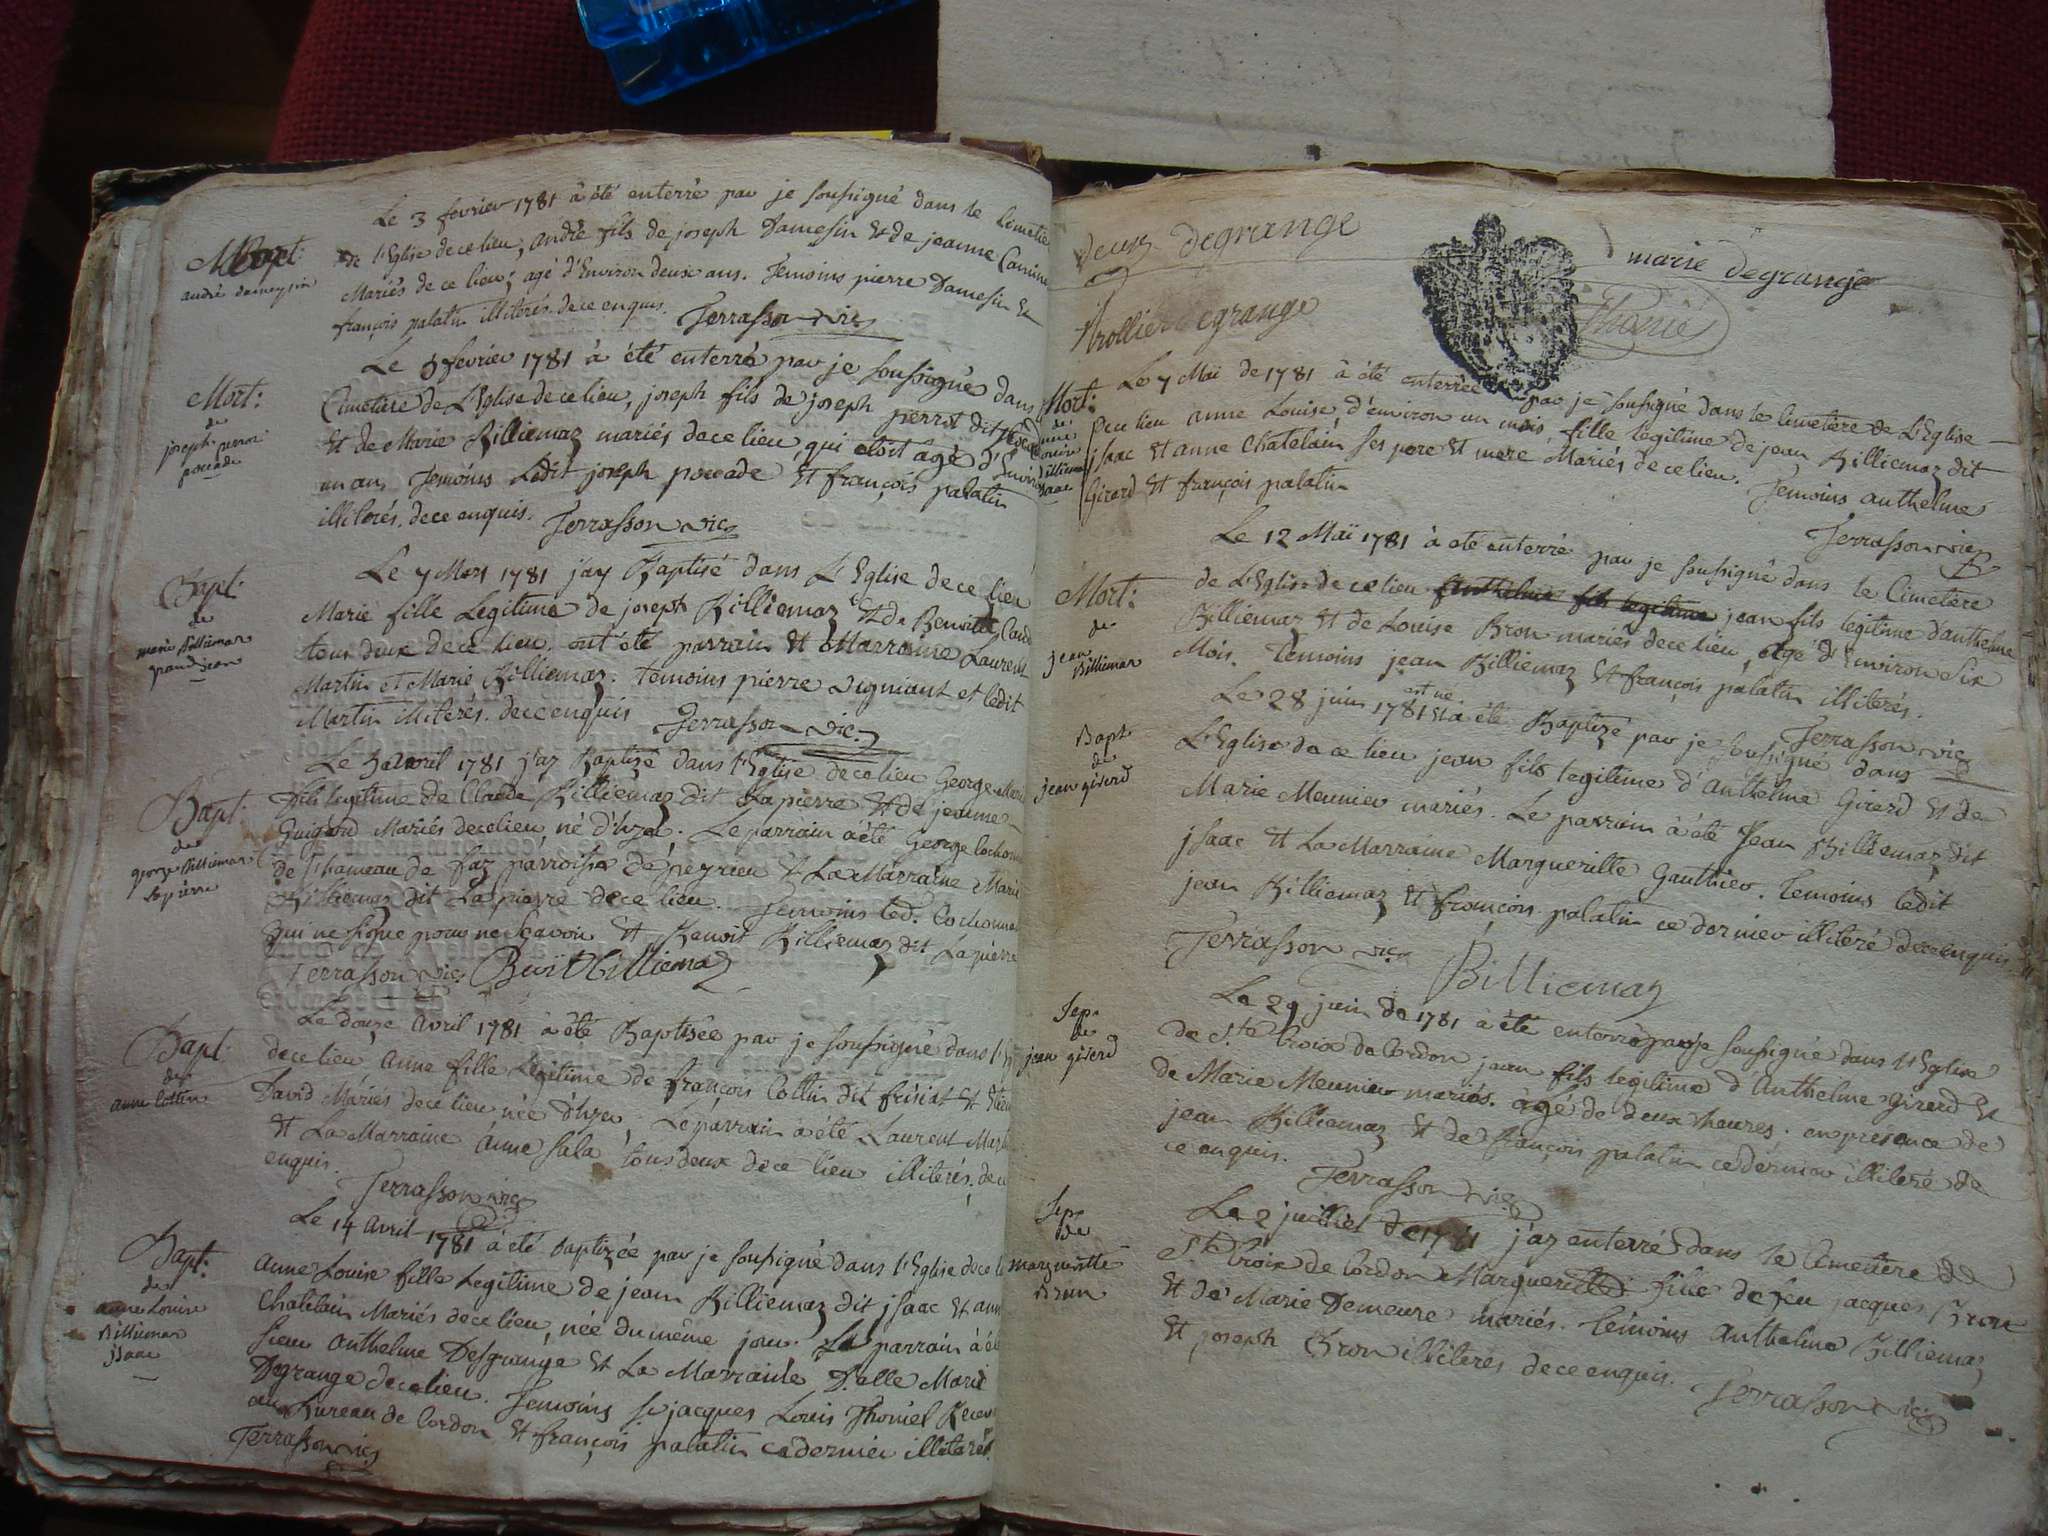 Le 3 fevrier 1781 à été enterré par je soussigné dans le Cimetie
Mort:
andré dameysin
de l'Eglise dece lieu, andré fils de joseph Damesin Et de jeanne
Mariés de ce lieu; agé d'Environ deux ans. Temoins pierre Damesin Et
françois palatin illiterés. dece enquis.
Terrasson vic.
Le fevrier 1781 à été enterré par je soussigné dans
Mort:
de
joseph perrot
poucade
Cimetiere de L'Eglise dece lieu, joseph fils de joseph perrot dit
Et de Marie Billiemaz mariés dece lieu, qui etoit agé d'Environ
un an, Temoins Ledit joseph poucade Et françois palatin
illiterés. dece enquis. Terrasson vic.
Le 7 Mars 1781 j'ay Baptisé dans L'Eglise dece lieu
Bapt:
de
marie Billiemaz
grand jean
Marie fille Legitime de joseph Billiemaz Et de Benoitte
tous deux dece lieu. ont été parrain Et Marraine Laurent
Martin et Marie Billiemaz. temoins pierre et ledit
Martin illiterés. dece enquis Terrasson vic.
Le avril 1781 j'ay Baptisé dans l'Eglise dece lieu George
Bapt:
de
george Billiemaz
lapierre
fils legitime de Claude Billiemaz dit Lapierre Et de jeanne
Guigard Mariés dece lieu, né d'hyer. Le parrain à été George Cochonat
de l'hameau de faz parroisse de peyrieu Et La Marraine Marie
Billiemaz dit Lapierre dece lieu. Temoins led. Cochonnat
qui ne signe pour ne sçavoir Et Benoit Billiemaz dit Lapierre
Terrasson vic. Billiemaz
Le douze avril 1781 à été Baptisée par je soussigné dans l'E
Bapt:
de
anne Cottin
dece lieu, anne fille Legitime de françois Cottin dit frisiat Et
David Mariés dece lieu née d'hyer. Le parrain à été Laurent Mar
Et La Marraine Anne Sala tous deux dece lieu illiterés, de ce
enquis. Terrasson vic.
Le 14 avril 1781 à été baptizée par je soussigné dans l'Eglise dece l
Bapt:
de
anne Louise
Billiemaz
jsaac
anne Louise fille Legitime de jean Billiemaz dit jsaac Et ann
Chatelain Mariés dece lieu, née du même jour. Le parrain à été
Sieur anthelme Desgrange Et La Marraine D.elle Marie
Degrange dece lieu. Temoins sr jacques Louis Thoniel Recev
au Bureau de Cordon Et françois palatin ce dernier illiteré.
Terrasson vic.
degrange
marie degrange
trollier degrange
Mort:
de
anne
Louise
Billiemaz
jsaac
Le 7 Mai de 1781 à été enterrée par je soussigné dans le Cimetère de L'Eglise
De ce lieu anne Louise, d'environ un mois, fille legitime de jean Billiemaz dit
jsaac Et anne Chatelain ses pere Et mere Mariés dece lieu. Temoins anthelme
Girard Et françois palatin
Terrasson vic.
Le 12 Mai 1781 à été enterré par je soussigné dans le Cimetère
Mort:
de
jean
Billiemaz
de L'Eglise de ce lieu anthelme fils legitime jean fils legitime d'anthelme
Billiemaz Et de Louise Bron mariés dece lieu, agé d'Environ six
Mois. Temoins jean Billiemaz Et françois palatin illiterés.
Terrasson vic.
Le 28 juin 1781 est né Et à été Baptizé par je soussigné dans
Bapt
de
jean girerd
L'Eglise de ce lieu jean fils legitime d'Anthelme Girerd Et de
Marie Meunier mariés. Le parrain à été Jean Billiemaz dit
jsaac Et La Marraine Margueritte Gauthier. Temoins ledit
jean Billiemaz Et françois palatin ce dernier illiteré dece enquis
Terrasson vic. Billiemaz
Le 29 juin de 1781 à été enterré par je soussigné dans l'Eglise
Sep.
de
jean girerd
de Ste Croix de Cordon jean fils legitime d'Anthelme girerd Et
de Marie Meunier mariés. agé de deux heures, en presence de
jean Billiemaz Et de françois palatin ce dernier illiteré de
ce enquis. Terrasson vic.
Le 2 juillet de 1781 j'ay enterré dans le Cimetiere de
Sep.
de
marguerítte
Bron
Ste Croix de Cordon Marguerítte fille de feu jacques Bron
Et de Marie Demeure mariés. temoins anthelme Billiemaz
Et joseph Bron illiterés dece enquis.
Terrasson vic.